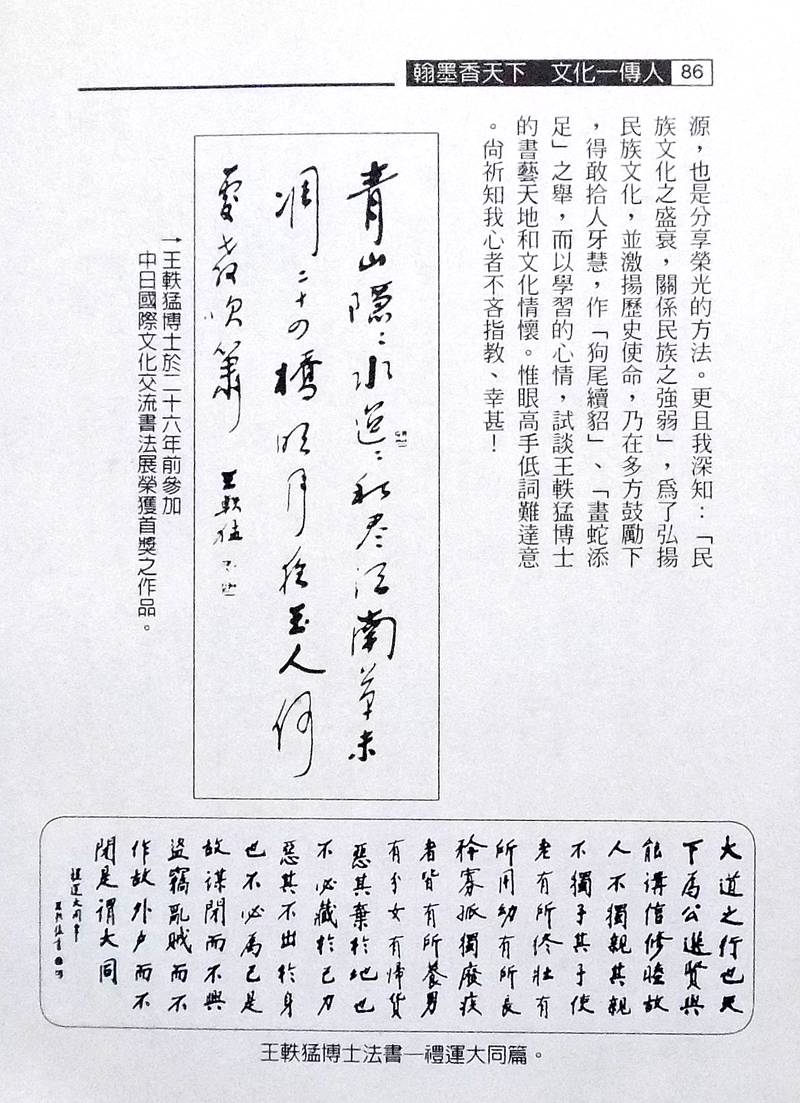 翰墨香天下 文化一傳人 86
源，也是分享榮光的方法。更且我深知：「民
族文化之盛衰，關係民族之強弱」，爲了弘揚
民族文化，並激揚歷史使命，乃在多方鼓勵下
，得敢拾人牙慧，作「狗尾續貂」、「畫蛇添
足」之舉，而以學習的心情，試談王軼猛博士
的書藝天地和文化情懷。惟眼高手低詞難達意
。尚祈知我心者不吝指教、幸甚！
青山隱〻水迢〻秋盡江南草未
凋二十四橋明月夜玉人何
處教吹簫 王軼猛
→王軼猛博士於二十六年前參加
中日國際文化交流書法展榮獲首獎之作品。
大道之行也天
下為公選賢與
能講信修睦故
人不獨親其親
不獨子其子使
老有所終壯有
所用幼有所長
矜寡孤獨廢疾
者皆有所養男
有分女有歸貨
惡其棄於地也
不必藏於己力
惡其不出於身
也不必為己是
故謀閉而不興
盜竊亂賊而不
作故外戶而不
閉是謂大同
禮運大同章
王軼猛書
王軼猛博士法書—禮運大同篇。